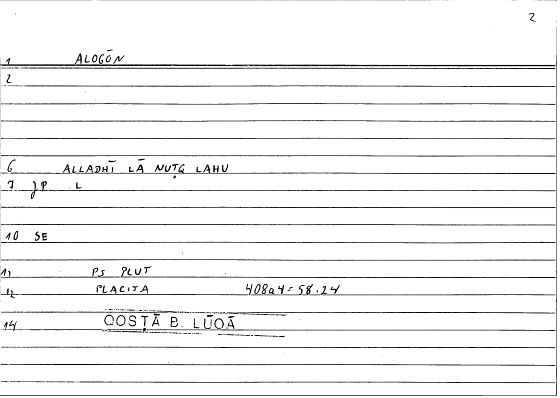 2
1 ALOGŌN
2
6 ALLADHĪ LĀ NUṬQ LAHU
7 JP L
10 SE
11 PS PLUT
12 PLACITA 408a4 = 58.24
14 QOSṬĀ B. LŪQĀ